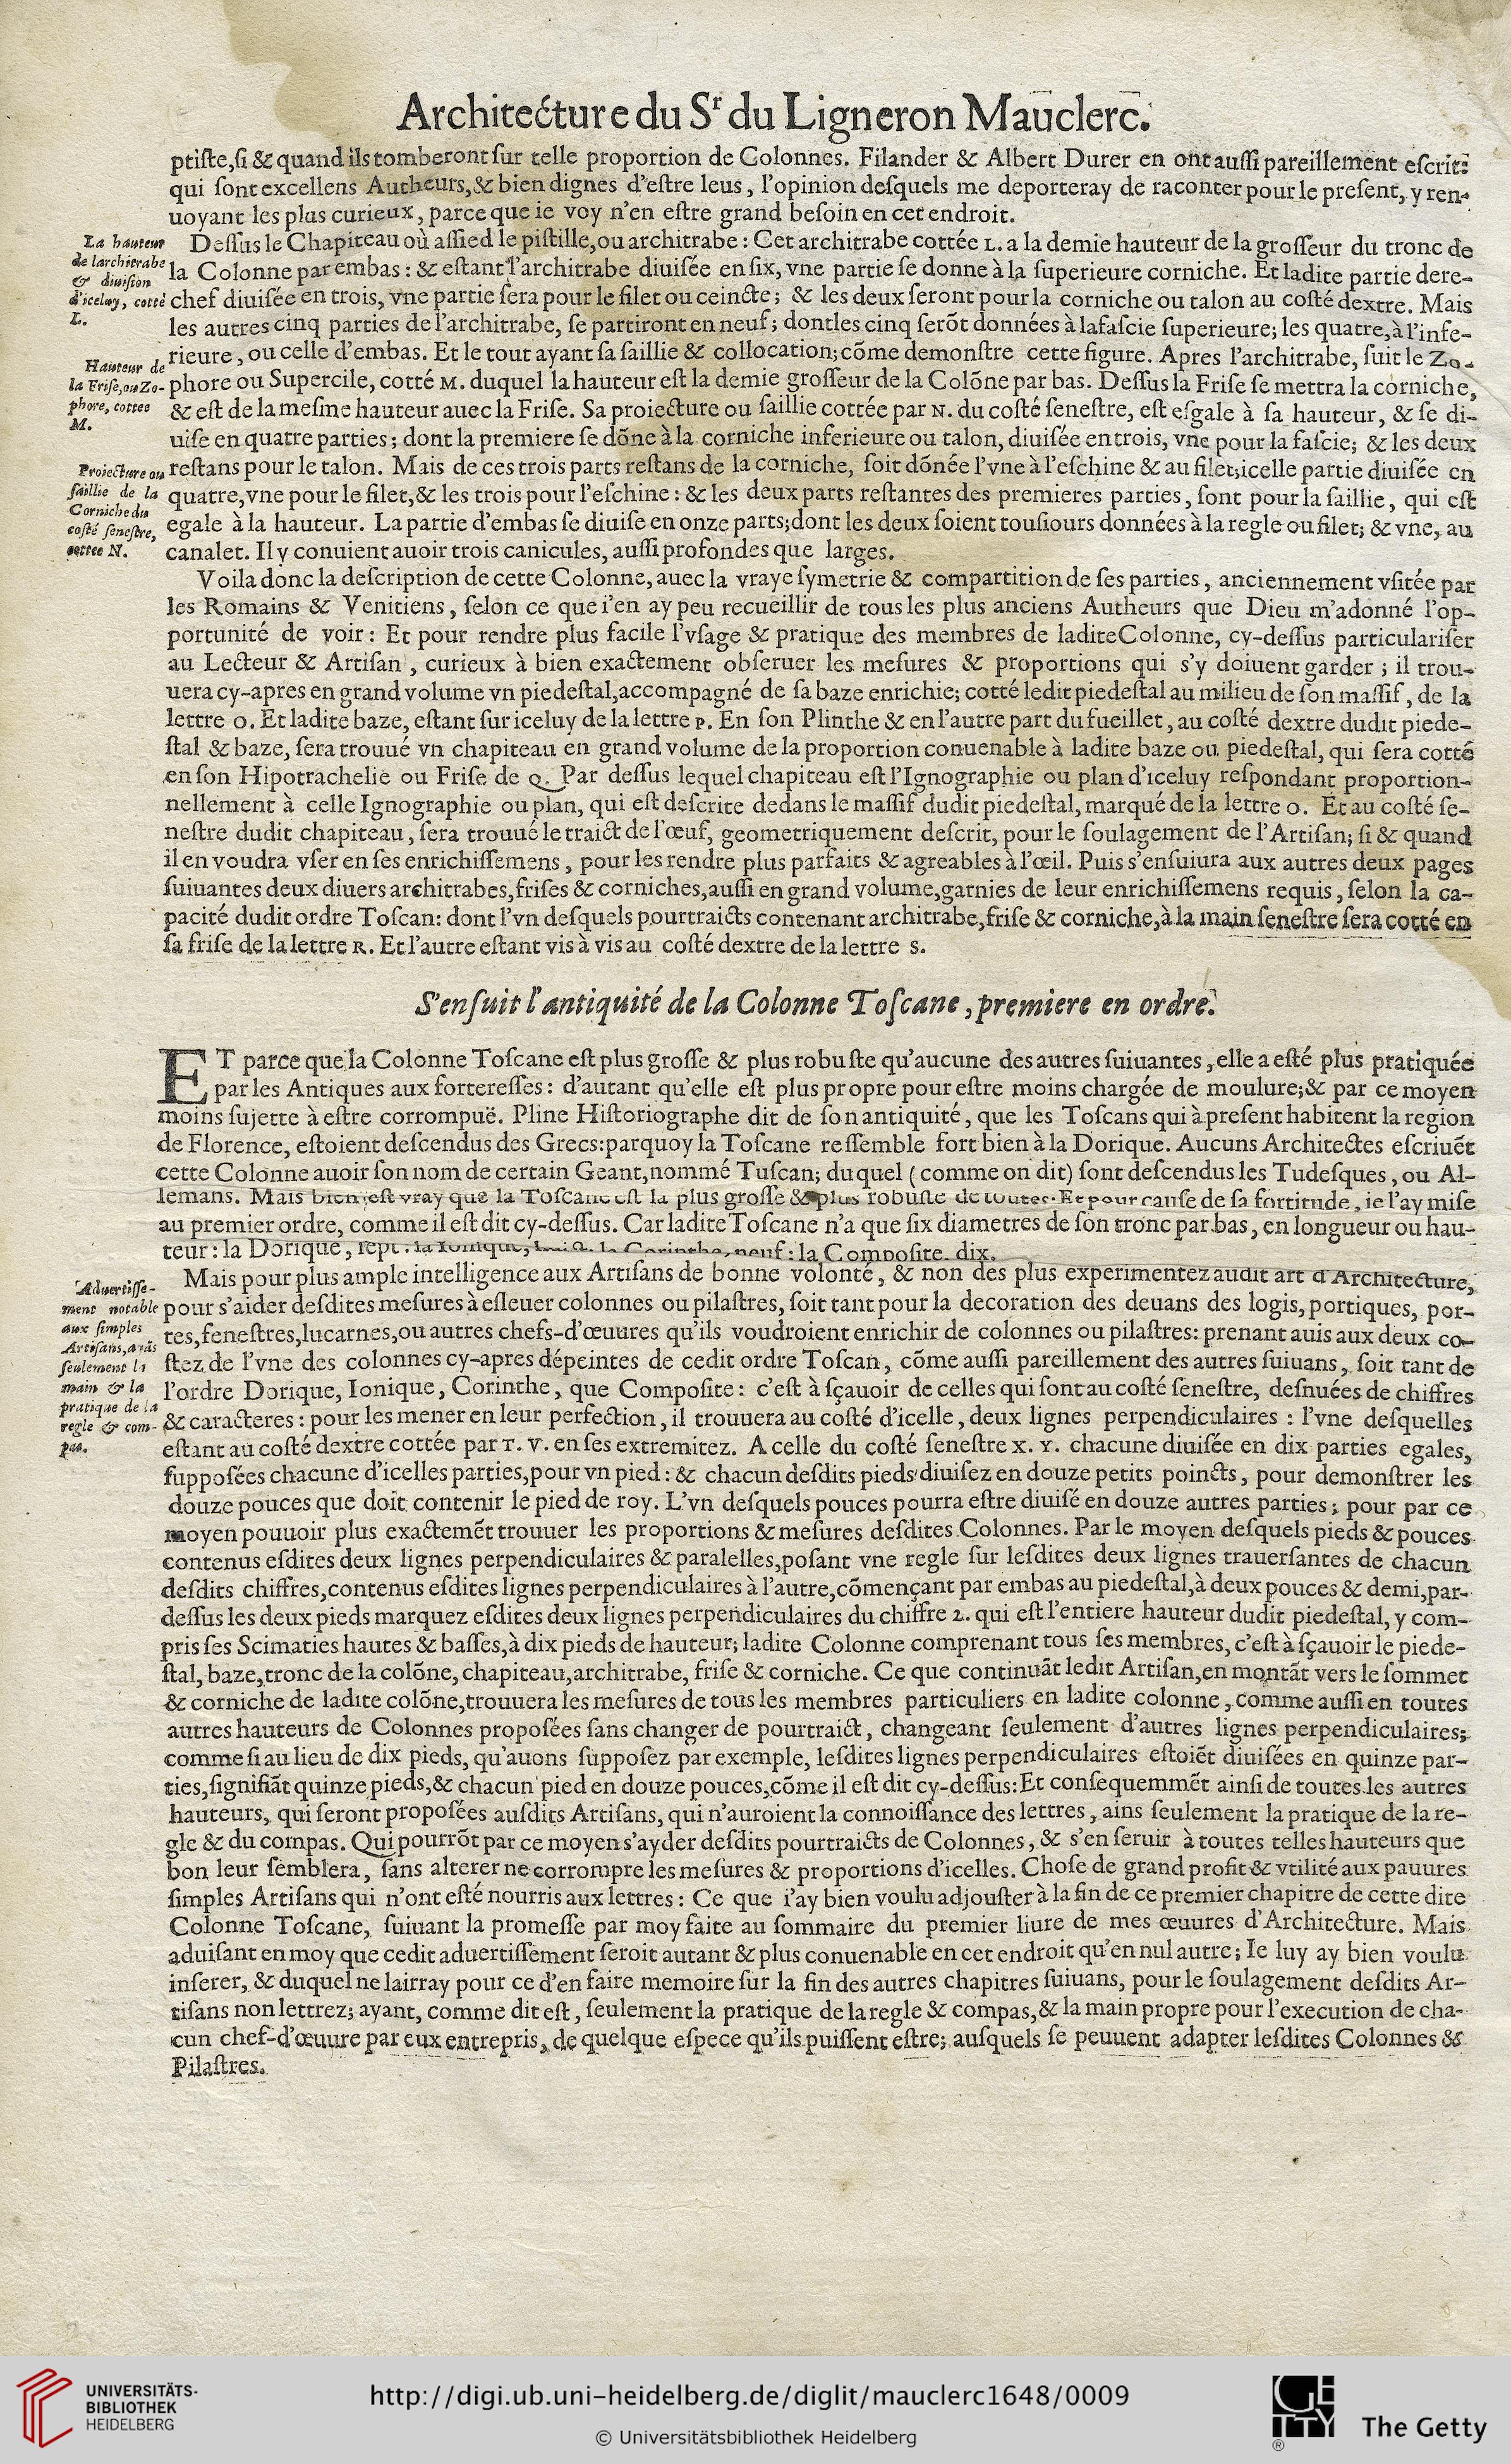 Architecture du Sr du Ligneron Mauclerc.
ptiſte, ſi & quand ils tomberont ſur telle proportion de Colonnes. Filander & Albert Durer en ont auſſi pareillement eſcrit:
qui ſont excellens Autheurs, & bien dignes d'eſtre leus, l'opinion deſquels me deporteray de raconter pour le preſent, y ren-
uoyant les plus curieux, parce que ie voy n'en eſtre grand beſoin en cet endroit.
La hauteur
de larchitrabe
& diuiſion
d'iceluy, cotté
L.
Deſſus le Chapiteau où aſſied le piſtille, ou architrabe: Cet architrabe cottée L. a la demie hauteur de la groſſeur du tronc de
la Colonne par embas: & eſtant l'architrabe diuiſée en ſix, vne partie ſe donne à la ſuperieure corniche. Et ladite partie dere-
chef diuiſée en trois, vne partie ſera pour le filet ou ceincte; & les deux ſeront pour la corniche ou talon au coſté dextre. Mais
les autres cinq parties de l'architrabe, ſe partiront en neuf; dont les cinq ſerõt données à la faſcie ſuperieure; les quatre, à l'infe-
rieure, ou celle d'embas. Et le tout ayant ſa ſaillie & collocation; cõme demonſtre cette figure. Apres l'architrabe, ſuit le Zo-
Hauteur de
la Friſe, ou Zo-
phore, cottee
M.
phore ou Supercile, cotté M. duquel la hauteur eſt la demie groſſeur de la Colõne par bas. Deſſus la Friſe ſe mettra la corniche,
& eſt de la meſme hauteur auec la Friſe. Sa proiecture ou ſaillie cottée par N. du coſté ſeneſtre, eſt eſgale à ſa hauteur, & ſe di-
uiſe en quatre parties; dont la premiere ſe dõne à la corniche inferieure ou talon, diuiſée en trois, vne pour la faſcie; & les deux
Proiecture ou
ſaillie de la
Corniche du
coſté ſeneſtre,
cottee N.
reſtans pour le talon. Mais de ces trois parts reſtans de la corniche, ſoit dõnée l'vne à l'eſchine & au filet; icelle partie diuiſée en
quatre, vne pour le filet, & les trois pour l'eſchine: & les deux parts reſtantes des premieres parties, ſont pour la ſaillie, qui eſt
egale à la hauteur. La partie d'embas ſe diuiſe en onze parts; dont les deux ſoient touſiours données à la regle ou filet; & vne, au
canalet. Il y conuient auoir trois canicules, auſſi profondes que larges.
Voila donc la deſcription de cette Colonne, auec la vraye ſymetrie & compartition de ſes parties, anciennement vſitée par
les Romains & Venitiens, ſelon ce que i'en ay peu recueillir de tous les plus anciens Autheurs que Dieu m'a donné l'op-
portunité de voir: Et pour rendre plus facile l'vſage & pratique des membres de ladite Colonne, cy-deſſus particulariſer
au Lecteur & Artiſan, curieux à bien exactement obſeruer les meſures & proportions qui s'y doiuent garder; il trou-
uera cy-apres en grand volume vn piedeſtal, accompagné de ſa baze enrichie; cotté ledit piedeſtal au milieu de ſon maſſif, de la
lettre O. Et ladite baze, eſtant ſur iceluy de la lettre P. En ſon Plinthe & en l'autre part du fueillet, au coſté dextre dudit piede-
ſtal & baze, ſera trouué vn chapiteau en grand volume de la proportion conuenable à ladite baze ou piedeſtal, qui ſera cotté
en ſon Hipotrachelie ou Friſe de Q. Par deſſus lequel chapiteau eſt l'Ignographie ou plan d'iceluy reſpondant proportion-
nellement à celle Ignographie ou plan, qui eſt deſcrite dedans le maſſif dudit piedeſtal, marqué de la lettre O. Et au coſté ſe-
neſtre dudit chapiteau, ſera trouué le traict de l'œuf, geometriquement deſcrit, pour le ſoulagement de l'Artiſan; ſi & quand
il en voudra vſer en ſes enrichiſſemens, pour les rendre plus parfaits & agreables à l'œil. Puis s'enſuiura aux autres deux pages
ſuiuantes deux diuers architrabes, friſes & corniches, auſſi en grand volume, garnies de leur enrichiſſemens requis, ſelon la ca-
pacité dudit ordre Toſcan: dont l'vn deſquels pourtraicts contenant architrabe, friſe & corniche, à la main ſeneſtre ſera cotté en
ſa friſe de la lettre R. Et l'autre eſtant vis à vis au coſté dextre de la lettre S.
S'enſuit l'antiquité de la Colonne Toſcane, premiere en ordre.
ET parce que la Colonne Toſcane eſt plus groſſe & plus robuſte qu'aucune des autres ſuiuantes, elle a eſté plus pratiquée
par les Antiques aux fortereſſes: d'autant qu'elle eſt plus propre pour eſtre moins chargée de moulure; & par ce moyen
moins ſujette à eſtre corrompuë. Pline Hiſtoriographe dit de ſon antiquité, que les Toſcans qui à preſent habitent la region
de Florence, eſtoient deſcendus des Grecs: parquoy la Toſcane reſſemble fort bien à la Dorique. Aucuns Architectes eſcriuẽt
cette Colonne auoir ſon nom de certain Geant, nommé Tuſcan; duquel (comme on dit) ſont deſcendus les Tudeſques, ou Al-
lemans. Mais bien eſt vray que la Toſcane eſt la plus groſſe & plus robuſte de toutes. Et pour cauſe de ſa fortitude, ie l'ay miſe
au premier ordre, comme il eſt dit cy-deſſus. Car ladite Toſcane n'a que ſix diametres de ſon tronc par bas, en longueur ou hau-
teur: la Dorique, ſept: la Ionique, huict: la Corinthe, neuf: la Compoſite, dix.
Aduertiſſe-
ment notable
aux ſimples
Artiſans, ayãs
ſeulement la
main & la
pratique de la
regle & com-
pas.
Mais pour plus ample intelligence aux Artiſans de bonne volonté, & non des plus experimentez audit art d'Architecture,
pour s'aider deſdites meſures à eſleuer colonnes ou pilaſtres, ſoit tant pour la decoration des deuans des logis, portiques, por-
tes, feneſtres, lucarnes, ou autres chefs-d'œuures qu'ils voudroient enrichir de colonnes ou pilaſtres: prenant auis aux deux co-
ſtez de l'vne des colonnes cy-apres dépeintes de cedit ordre Toſcan, cõme auſſi pareillement des autres ſuiuans, ſoit tant de
l'ordre Dorique, Ionique, Corinthe, que Compoſite: c'eſt à ſçauoir de celles qui ſont au coſté ſeneſtre, deſnuées de chiffres
& caracteres: pour les mener en leur perfection, il trouuera au coſté d'icelle, deux lignes perpendiculaires: l'vne deſquelles
eſtant au coſté dextre cottée par T. V. en ſes extremitez. A celle du coſté ſeneſtre X. Y. chacune diuiſée en dix parties egales,
ſuppoſées chacune d'icelles parties, pour vn pied: & chacun deſdits pieds diuiſez en douze petits poincts, pour demonſtrer les
douze pouces que doit contenir le pied de roy. L'vn deſquels pouces pourra eſtre diuiſé en douze autres parties; pour par ce
moyen pouuoir plus exactemẽt trouuer les proportions & meſures deſdites Colonnes. Par le moyen deſquels pieds & pouces
contenus eſdites deux lignes perpendiculaires & paralelles, poſant vne regle ſur leſdites deux lignes trauerſantes de chacun
deſdits chiffres, contenus eſdites lignes perpendiculaires à l'autre, cõmençant par embas au piedeſtal, à deux pouces & demi, par-
deſſus les deux pieds marquez eſdites deux lignes perpendiculaires du chiffre 2. qui eſt l'entiere hauteur dudit piedeſtal, y com-
pris ſes Scimaties hautes & baſſes, à dix pieds de hauteur; ladite Colonne comprenant tous ſes membres, c'eſt à ſçauoir le piede-
ſtal, baze, tronc de la colõne, chapiteau, architrabe, friſe & corniche. Ce que continuãt ledit Artiſan, en montãt vers le ſommet
& corniche de ladite colõne, trouuera les meſures de tous les membres particuliers en ladite colonne, comme auſſi en toutes
autres hauteurs de Colonnes propoſées ſans changer de pourtraict, changeant ſeulement d'autres lignes perpendiculaires;
comme ſi au lieu de dix pieds, qu'auons ſuppoſez par exemple, leſdites lignes perpendiculaires eſtoiẽt diuiſées en quinze par-
ties, ſignifiãt quinze pieds, & chacun pied en douze pouces, cõme il eſt dit cy-deſſus: Et conſequemmẽt ainſi de toutes les autres
hauteurs, qui ſeront propoſées auſdits Artiſans, qui n'auroient la connoiſſance des lettres, ains ſeulement la pratique de la re-
gle & du compas. Qui pourrõt par ce moyen s'ayder deſdits pourtraicts de Colonnes, & s'en ſeruir à toutes telles hauteurs que
bon leur ſemblera, ſans alterer ne corrompre les meſures & proportions d'icelles. Choſe de grand profit & vtilité aux pauures
ſimples Artiſans qui n'ont eſté nourris aux lettres: Ce que i'ay bien voulu adjouſter à la fin de ce premier chapitre de cette dite
Colonne Toſcane, ſuiuant la promeſſe par moy faite au ſommaire du premier liure de mes œuures d'Architecture. Mais
aduiſant en moy que cedit aduertiſſement ſeroit autant & plus conuenable en cet endroit qu'en nul autre; Ie luy ay bien voulu
inſerer, & duquel ne lairray pour ce d'en faire memoire ſur la fin des autres chapitres ſuiuans, pour le ſoulagement deſdits Ar-
tiſans non lettrez; ayant, comme dit eſt, ſeulement la pratique de la regle & compas, & la main propre pour l'execution de cha-
cun chef-d'œuure par eux entrepris, de quelque eſpece qu'ils puiſſent eſtre; auſquels ſe peuuent adapter leſdites Colonnes &
Pilaſtres.
UNIVERSITÄTS-
BIBLIOTHEK
HEIDELBERG
http://digi.ub.uni-heidelberg.de/diglit/mauclerc1648/0009
© Universitätsbibliothek Heidelberg
GETTY
®
The Getty